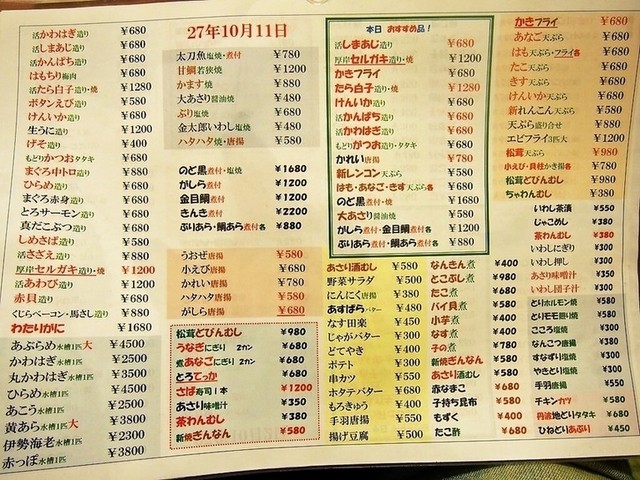 活かわはぎ造り ¥680
活しまあじ造り ¥680
活かんぱち造り ¥680
はもちり梅肉 ¥680
活たら白子造り・焼 ¥1280
ボタンえび造り ¥580
けんいか造り ¥680
生うに造り ¥1200
げそ造り ¥400
もどりかつおタタキ ¥680
まぐろ中トロ造り ¥880
ひらめ造り ¥680
まぐろ赤身造り ¥680
とろサーモン造り ¥680
真だこぶつ造り ¥680
しめさば造り ¥580
活さざえ造り ¥880
厚岸セルガキ造り・焼 ¥1200
活あわび造り ¥1200
赤貝造り ¥680
くじらベーコン・馬さし造り ¥880
わたりがに ¥1680
あぶらめ水槽1匹大 ¥4500
かわはぎ水槽1匹 ¥2500
丸かわはぎ水槽1匹 ¥3500
ひらめ水槽1匹 ¥4500
あこう水槽1匹 ¥2500
黄あら水槽1匹大 ¥3800
伊勢海老水槽1匹 ¥2300
赤っぽ水槽1匹 ¥3800
27年10月11日
太刀魚塩焼・煮付 ¥780
甘鯛若狭焼 ¥1200
かます焼 ¥880
大あさり醤油焼 ¥480
ぶり塩焼 ¥680
金太郎いわし塩焼 ¥480
ハタハタ焼・唐揚 ¥580
のど黒煮付・塩焼 ¥1680
がしら煮付 ¥1200
金目鯛煮付 ¥1200
きんき煮付 ¥2200
ぶりあら・鯛あら煮付各 ¥880
うおぜ唐揚 ¥580
小えび唐揚 ¥680
かれい唐揚 ¥780
ハタハタ唐揚 ¥580
がしら唐揚 ¥680
松茸どびんむし ¥980
うなぎにぎり 2カン ¥680
煮あなごにぎり 2カン ¥680
とろてっか ¥680
さば寿司1本 ¥1200
あさり味噌汁 ¥350
茶わんむし ¥380
新焼ぎんなん ¥580
本日おすすめ品!
活しまあじ造り ¥680
厚岸セルガキ造り・焼 ¥1200
かきフライ ¥680
たら白子造り・焼 ¥1280
けんいか造り ¥680
活かんぱち造り ¥680
活かわはぎ造り ¥680
もどりかつお造り・タタキ ¥680
かれい唐揚 ¥780
新レンコン天ぷら ¥580
はも・あなご・きす天ぷら各 ¥680
のど黒造り・焼 ¥1680
大あさり醤油焼 ¥580
がしら・金目鯛煮付各 ¥1200
ぶりあら・鯛あら煮付各 ¥880
あさり酒むし ¥580
野菜サラダ ¥500
にんにく唐揚 ¥380
あすぱらバター ¥480
なす田楽 ¥450
じゃがバター ¥400
どてやき ¥400
ポテト ¥300
串カツ ¥550
ホタテバター ¥680
もろきゅう ¥400
手羽唐揚 ¥550
揚げ豆腐 ¥500
なんきん煮 ¥400
とこぶし煮 ¥980
たこ煮 ¥680
バイ貝煮 ¥580
小芋煮 ¥400
なす煮 ¥400
子の煮 ¥780
新焼ぎんなん ¥580
あさり酒むし ¥580
赤なまこ ¥680
子持ち昆布 ¥580
もずく ¥400
たこ酢 ¥680
かきフライ ¥680
あなご天ぷら ¥680
はも天ぷら・フライ各 ¥680
たこ天ぷら ¥680
きす天ぷら ¥680
けんいか天ぷら ¥680
新れんこん天ぷら ¥580
天ぷら盛り合せ ¥880
エビフライ3匹大 ¥1200
松茸天ぷら ¥980
小えび・貝柱かき揚各 ¥780
松茸どびんむし ¥980
ちゃわんむし ¥380
いわし茶漬 ¥550
じゃこめし ¥380
茶わんむし ¥380
いわしにぎり ¥300
いわし押し ¥300
あさり味噌汁 ¥350
いわし団子汁 ¥300
とりホルモン焼 ¥580
とりモモ照り焼 ¥580
こころ塩焼 ¥300
なんこつ唐揚 ¥380
すなずり塩焼 ¥500
やきとり塩焼 ¥300
手羽唐揚 ¥550
チキンカツ ¥580
丹波地どりタタキ ¥680
ひねどりあぶり ¥450